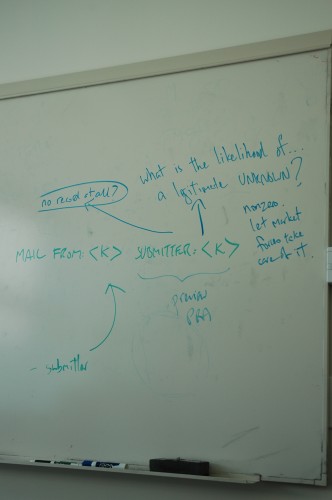 what is the likelihood of...
a legitimate UNKNOWN?
no record at all?
nonzero.
let market
forces take
care of it.
MAIL FROM: <K> SUBMITTER: <K>
PRA
- submitter